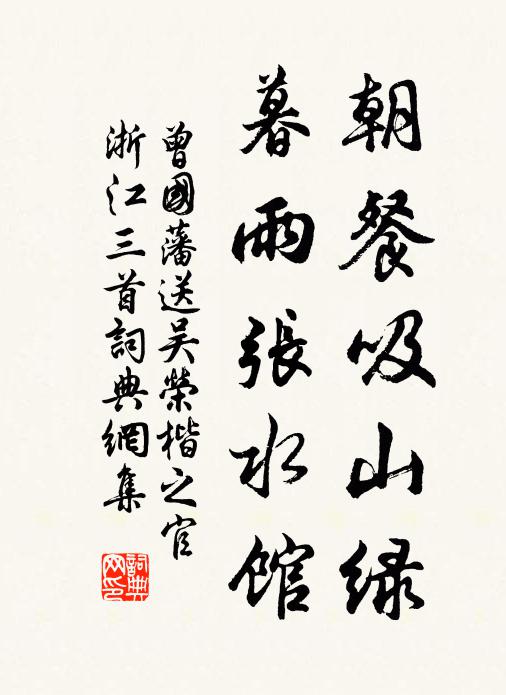 朝餐吸山緑
暮雨張水館
曾國藩送吴榮楷之官
浙江三首詞典網集
詞典网印